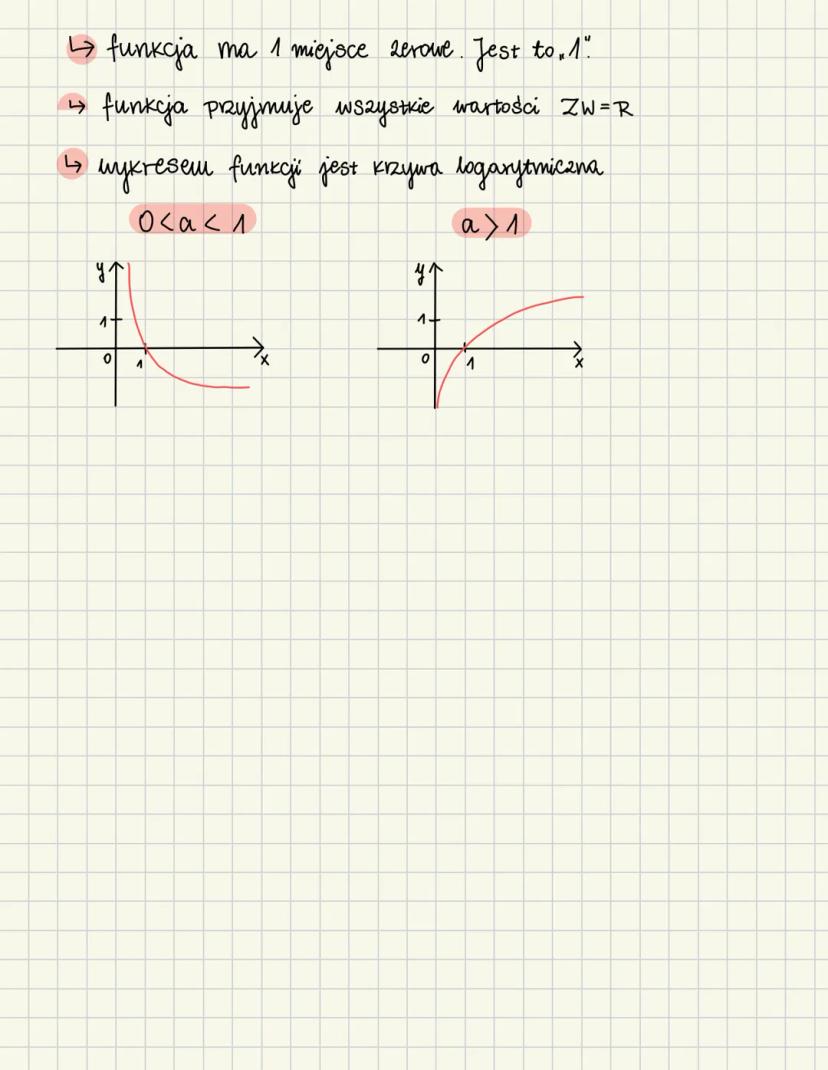 ↳ funkcja ma 1 miejsce zerowe. Jest to „1".
↳ funkcja przyjmuje wszystkie wartości ZW=R
↳ wykresem funkcji jest krzywa logarytmiczna
0<a<1
a>1
y
1
0
1
x
y
1
0
1
x